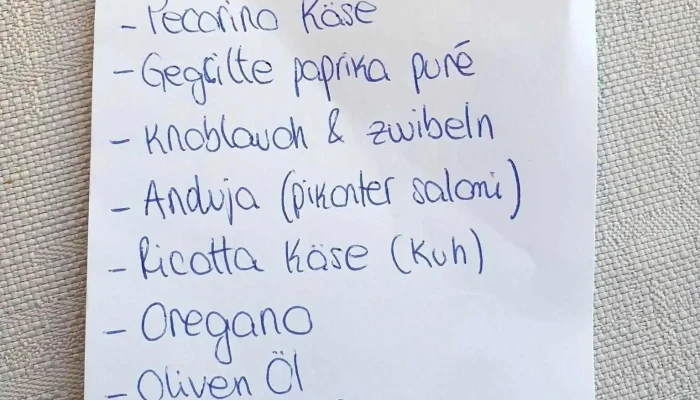 - Pecorino Käse
- Gegrilte paprika puré
- Knoblauch & zwibeln
- Anduja (pikanter salami)
- Ricotta Käse (Kuh)
- Oregano
- Oliven Öl